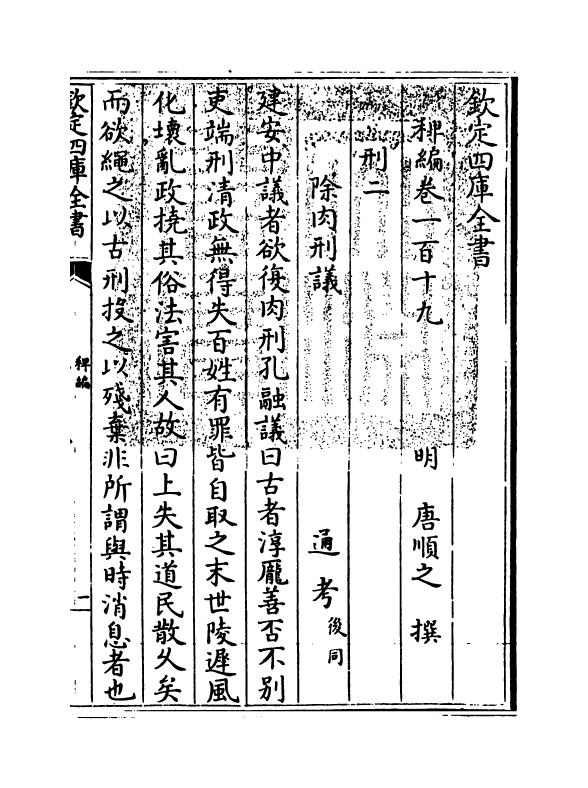 欽定四庫全書
稗編卷一百十九
明 唐順之 撰
刑二
除肉刑議
通考後同
建安中議者欲復肉刑孔融議曰古者淳厖善否不别
吏端刑清政無得失百姓有罪皆自取之末世陵遲風
化壞亂政撓其俗法害其人故曰上失其道民散乆矣
而欲繩之以古刑投之以殘棄非所謂與時消息者也
欽定四庫全書
稗編
一